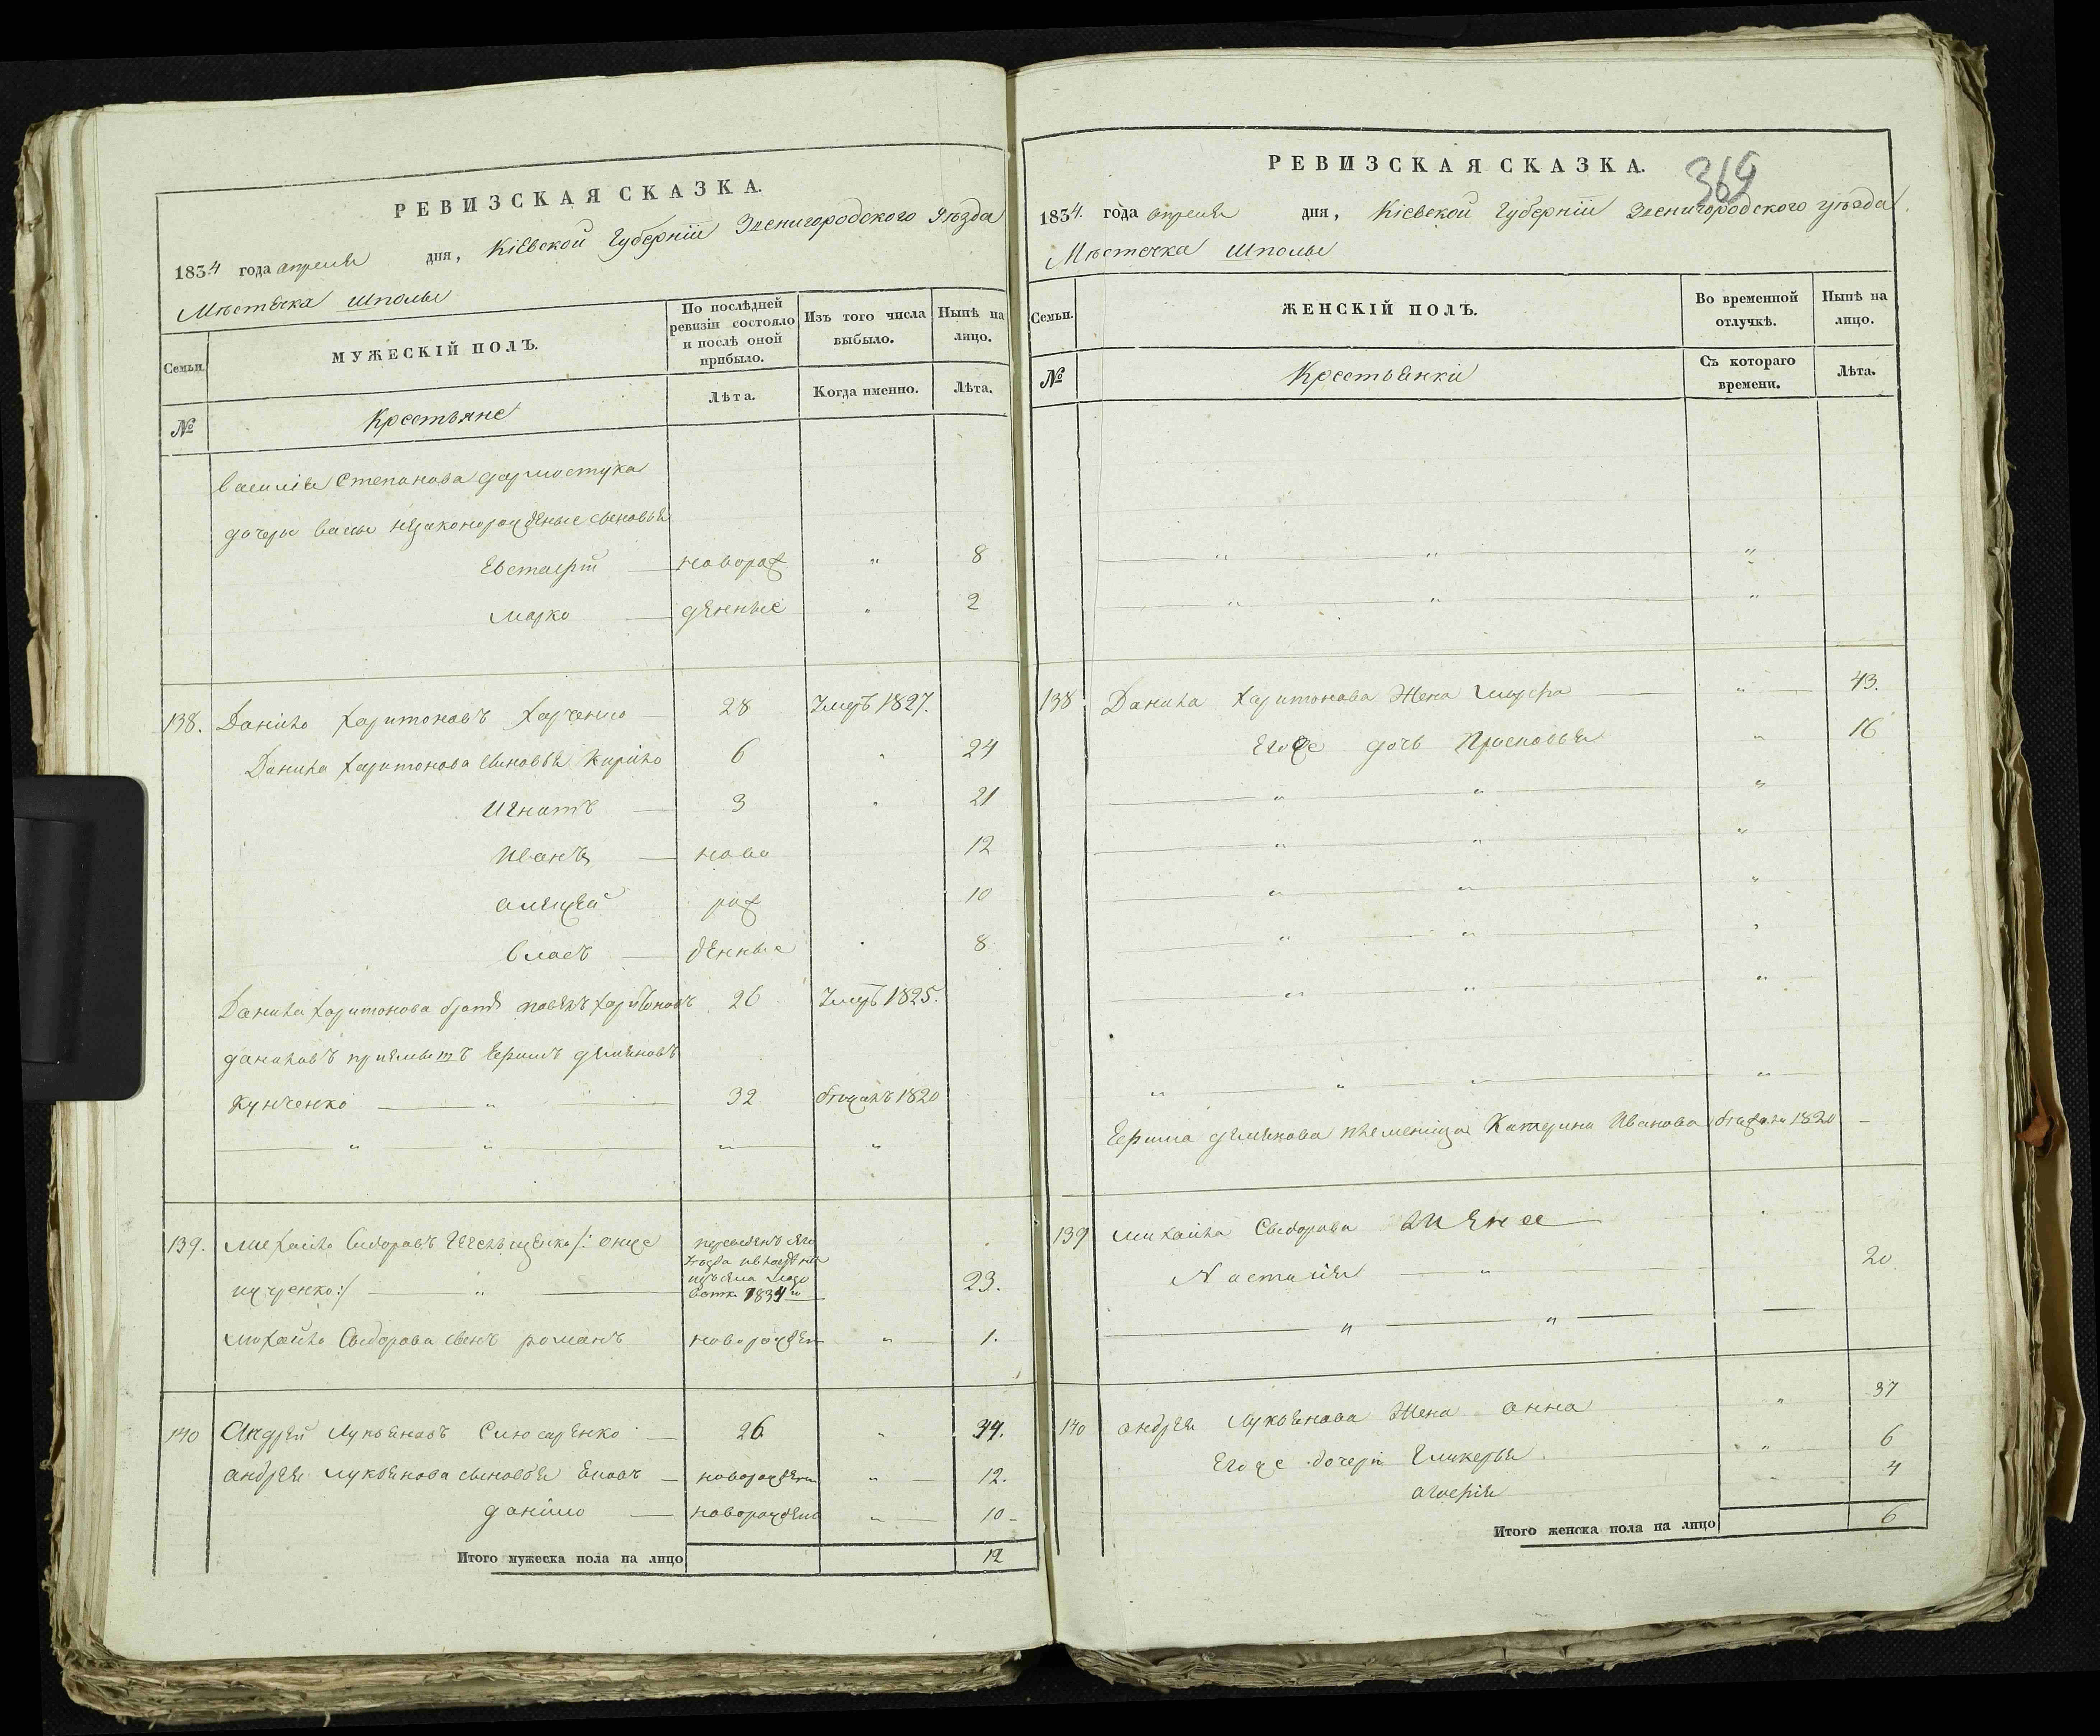 РЕВИЗСКАЯ СКАЗКА.
1834 года апреля дня, Кіевской Губерніи Звенигородского Уѣзда
Мѣстечка Шполы
Семьи.
МУЖЕСКІЙ ПОЛЪ.
По послѣдней ревизіи состояло и послѣ оной прибыло.
Изъ того числа выбыло.
Нынѣ на лицо.
Лѣта.
Когда именно.
Лѣта.
№
Крестьяне
Василія Степанова
дочери незаконорожденые сыновья
новорож " 8
Марко — денные " 2
138. Данило Харитоновъ Харченко 28 Умеръ 1827.
Данила Харитонова сыновья Кирило 6 " 24
Игнатъ — 3 " 21
Иванъ — ново 12
Алексей рож 10
Власъ — денные " 8
Данила Харитонова братъ Павелъ Харитоновъ 26 Умеръ 1825.
Даниловъ Ефимъ Демяновъ
Кунченко — " — 32 1820
" " " "
139. Михайло Сидоровъ /: онже
:/ — " — 1834 23.
Михайла Сидорова сынъ Романъ новорожден " 1.
140 Андрей Лукьяновъ Слюсаренко — 26 " 34.
Андрея Лукьянова сыновья — новорожден " 12.
Данило — новорожден " 10
Итого мужеска пола на лицо 12
РЕВИЗСКАЯ СКАЗКА. 369
1834. года апреля дня, Кіевской Губерніи Звенигородского уѣзда
Мѣстечка Шполы
Семьи.
ЖЕНСКІЙ ПОЛЪ.
Во временной отлучкѣ.
Нынѣ на лицо.
№
Крестьянки
Съ котораго времени.
Лѣта.
" " "
" " "
138 Данила Харитонова Жена Марфа " 43.
Егоже дочь Прасковья " 16
" " "
" " "
" " "
" " "
" " "
" " " "
Ефима Демянова Катерина Иванова 1820 —
139 Михайла Сидорова Жена
Настасія " 20
" "
140 Андрея Лукьянова Жена Анна " 37
Егоже дочери Гликерья " 6
Агафія 4
Итого женска пола на лицо 6